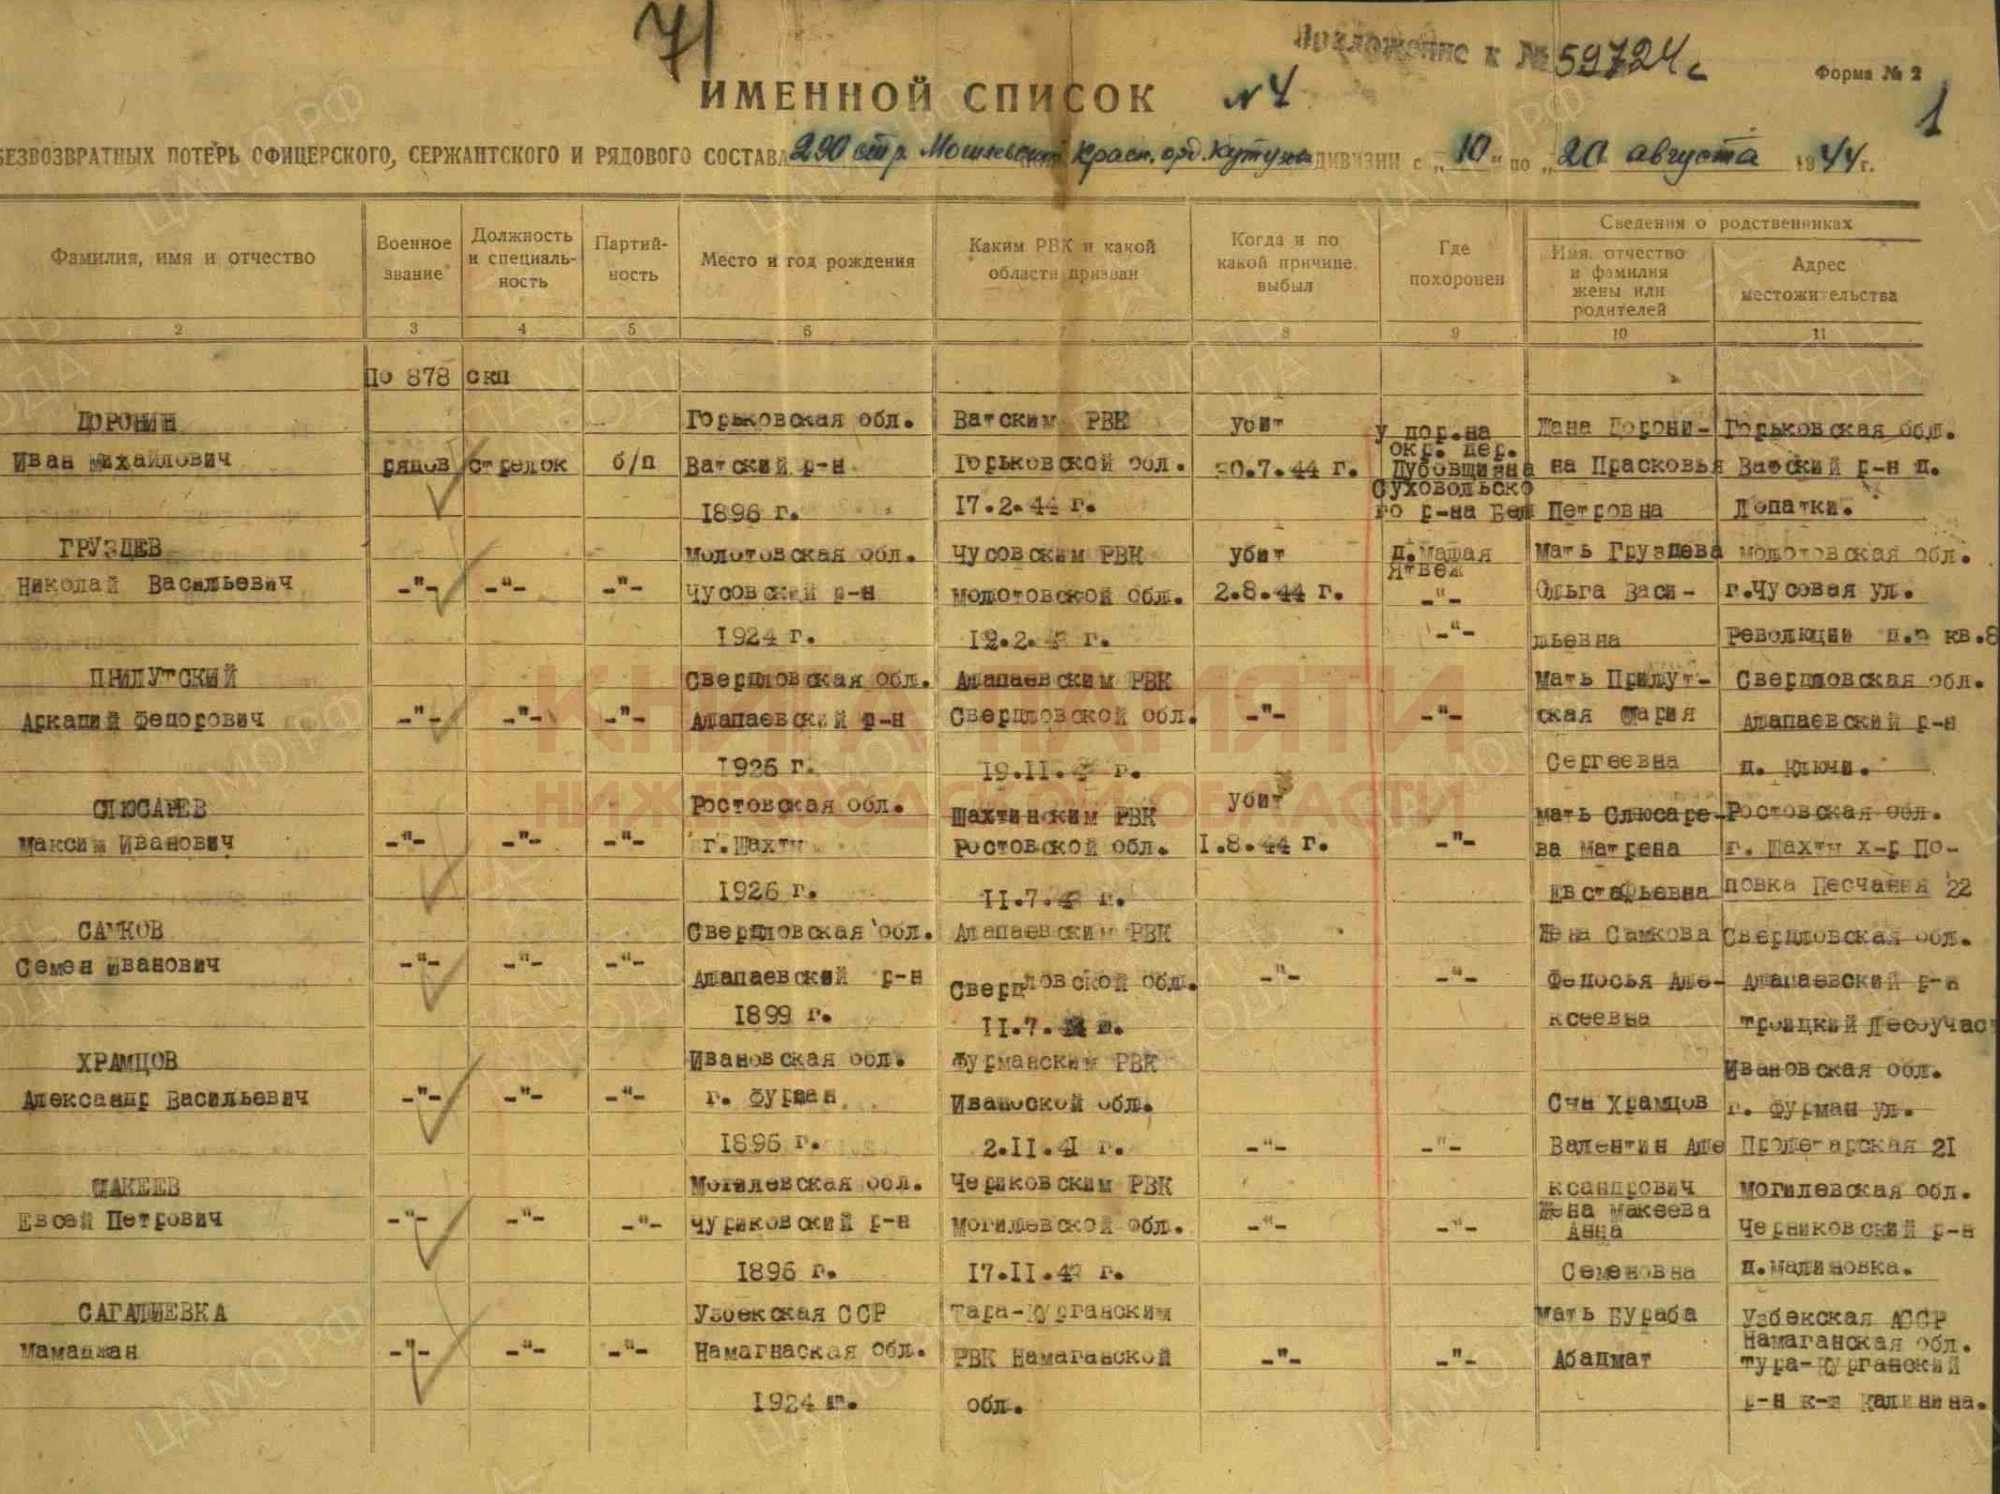 71
Приложение к № 59724с
Форма № 2
ИМЕННОЙ СПИСОК № 4
1
БЕЗВОЗВРАТНЫХ ПОТЕРЬ ОФИЦЕРСКОГО, СЕРЖАНТСКОГО И РЯДОВОГО СОСТАВА 290 стр. Краен. орд. Кутуз ДИВИЗИИ с „10" по „20 августа 1944г.
Фамилия, имя и отчество
Военное звание
Должность и специаль-ность
Партий-ность
Место и год рождения
Каким РВК и какой области призван
Когда и по какой причине выбыл
Где похоронен
Сведения о родственниках
Имя, отчество и фамилия жены или родителей
Адрес местожительства
2 3 4 5 6 7 8 9 10 11
По 878 скп
ДОРОНИН Горьковская обл. Ватским РВК убит у дор.на Жена Дорони- Горьковская обл.
окр. дер.
Иван Михайлович рядов стрелок б/п Ватский р-н Горьковской обл. 30.7.44 г. Дубовщизна на Прасковья Ватский р-н д.
Суховольско
1896 г. 17.2.44 г. го р-на Бел Петровна Лопатки.
ГРУЗДЕВ Молотовская обл. Чусовским РВК убит д.Малая Мать Груздева Молотовская обл.
Николай Васильевич -"- -"- -"- Чусовский р-н Молотовской обл. 2.8.44 г. -"- Ольга Васи- г.Чусовая ул.
1924 г. 12.2. г. -"- льевна Революции кв.8
ПРИЛУТСКИЙ Свердловская обл. Алапаевским РВК Мать Прилут- Свердловская обл.
Аркадий Федорович -"- -"- -"- Алапаевский р-н Свердловской обл. -"- -"- ская Мария Алапаевский р-н
1926 г. 19.II. г. Сергеевна д. Ключи.
СЛЮСАРЕВ Ростовская обл. Шахтинским РВК убит мать Слюсаре- Ростовская обл.
Максим Иванович -"- -"- -"- г.Шахты Ростовской обл. I.8.44 г. -"- ва Матрена г. Шахты х-р По-
1926 г. II.7. г. Евстафьевна повка Песчаная 22
САМКОВ Свердловская обл. Алапаевским РВК Жена Самкова Свердловская обл.
Семен Иванович -"- -"- -"- Алапаевский р-н Свердловской обл. -"- -"- Федосья Але- Алапаевский р-н
1899 г. II.7. г. ксеевна Троицкий Лесоучас
ХРАМЦОВ Ивановская обл. Фурманским РВК Ивановская обл.
Александр Васильевич -"- -"- -"- г. Фурман Иваноской обл. Сын Храмцов г. Фурман ул.
1896 г. 2.II.41 г. -"- -"- Валентин Але Пролетарская 21
МАКЕЕВ Могилевская обл. Чериковским РВК ксандрович Могилевская обл.
Жена Макеева
Евсей Петрович -"- -"- -"- Чуриковский р-н Могилевской обл. -"- -"- Анна Черниковский р-н
1896 г. 17.II.4 г. Семеновна д.Малиновка.
САГАДИЕВКА Узбекская ССР Тара-Курганским мать Бураба Узбекская АССР
Намаганская обл.
Мамаджан -"- -"- -"- Намагнаская обл. РВК Намаганской -"- -"- Абадмат Тура-Курганский
1924 г. обл. р-н к-з Калинина.
КНИГА ПАМЯТИ
НИЖЕГОРОДСКОЙ ОБЛАСТИ